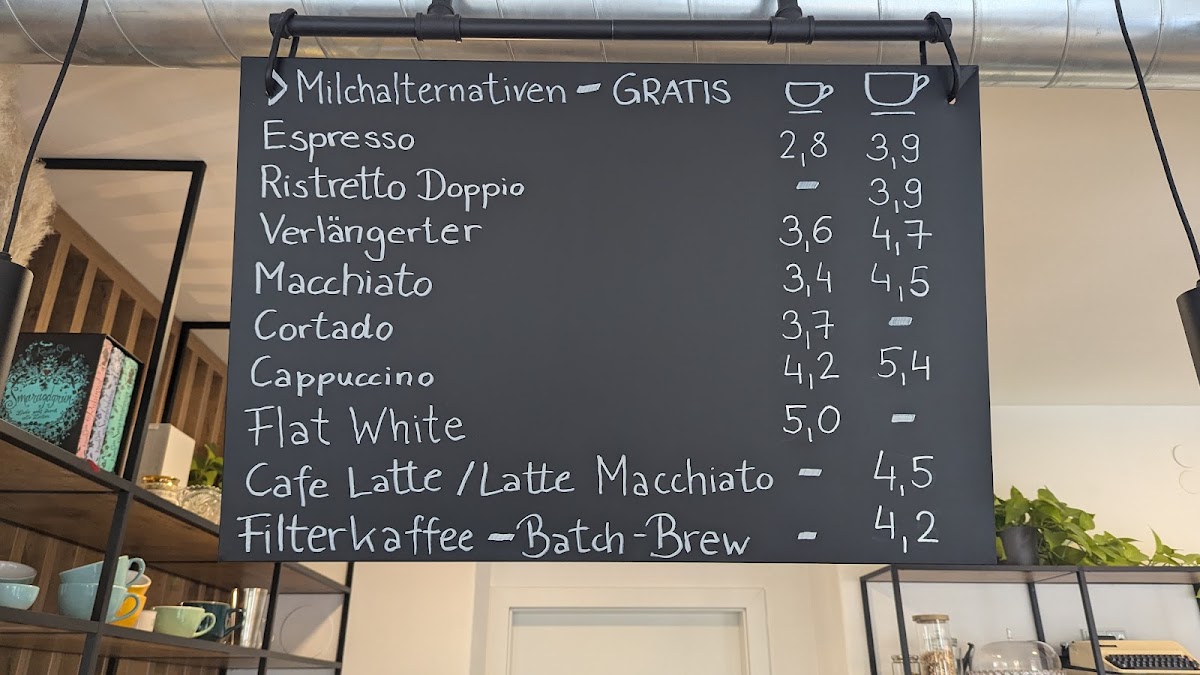 > Milchalternativen - GRATIS
Espresso 2,8 3,9
Ristretto Doppio - 3,9
Verlängerter 3,6 4,7
Macchiato 3,4 4,5
Cortado 3,7 -
Cappuccino 4,2 5,4
Flat White 5,0 -
Cafe Latte / Latte Macchiato - 4,5
Filterkaffee - Batch-Brew - 4,2
Smaragdgrün